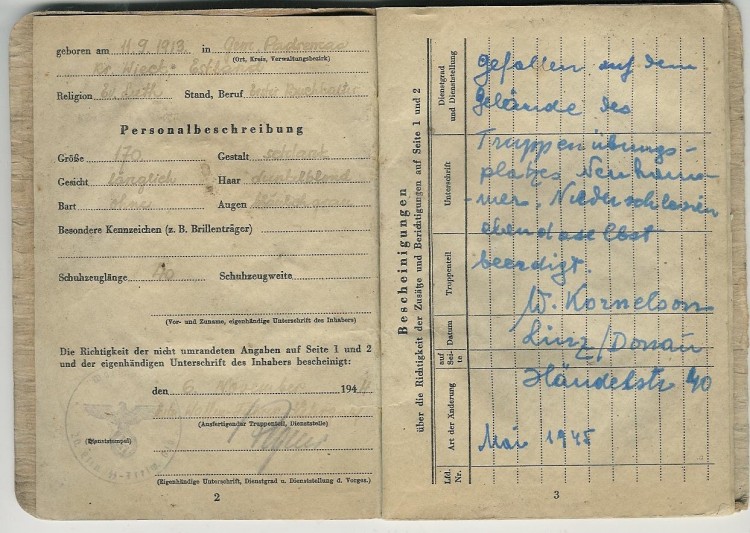 geboren am 11.9.1913 in Gem.
(Ort, Kreis, Verwaltungsbezirk)
Kr. Estland
Religion Ev. Luth Stand, Beruf Buchhalter
Personalbeschreibung
Größe 170 Gestalt schlank
Gesicht länglich Haar dunkelblond
Bart ohne Augen
Besondere Kennzeichen (z. B. Brillenträger)
Schuhzeuglänge Schuhzeugweite
(Vor- und Zuname, eigenhändige Unterschrift des Inhabers)
Die Richtigkeit der nicht umrandeten Angaben auf Seite 1 und 2
und der eigenhändigen Unterschrift des Inhabers bescheinigt:
den 6. 1944
(Ausfertigender Truppenteil, Dienststelle)
(Dienststempel)
(Eigenhändige Unterschrift, Dienstgrad u. Dienststellung d. Vorges.)
2
Bescheinigungen
über die Richtigkeit der Zusätze und Berichtigungen auf Seite 1 und 2
Dienstgrad
und Dienststellung
Unterschrift
Truppenteil
Datum
auf
Sei-
te
Art der Änderung
Lfd.
Nr.
Gefallen auf dem
Gelände des
Truppenübungs-
platzes Neuham-
mer, Niederschlesien
ebendaselbst
beerdigt.
W. Kornelson
Linz/Donau
Händelstr 40
Mai 1945
3